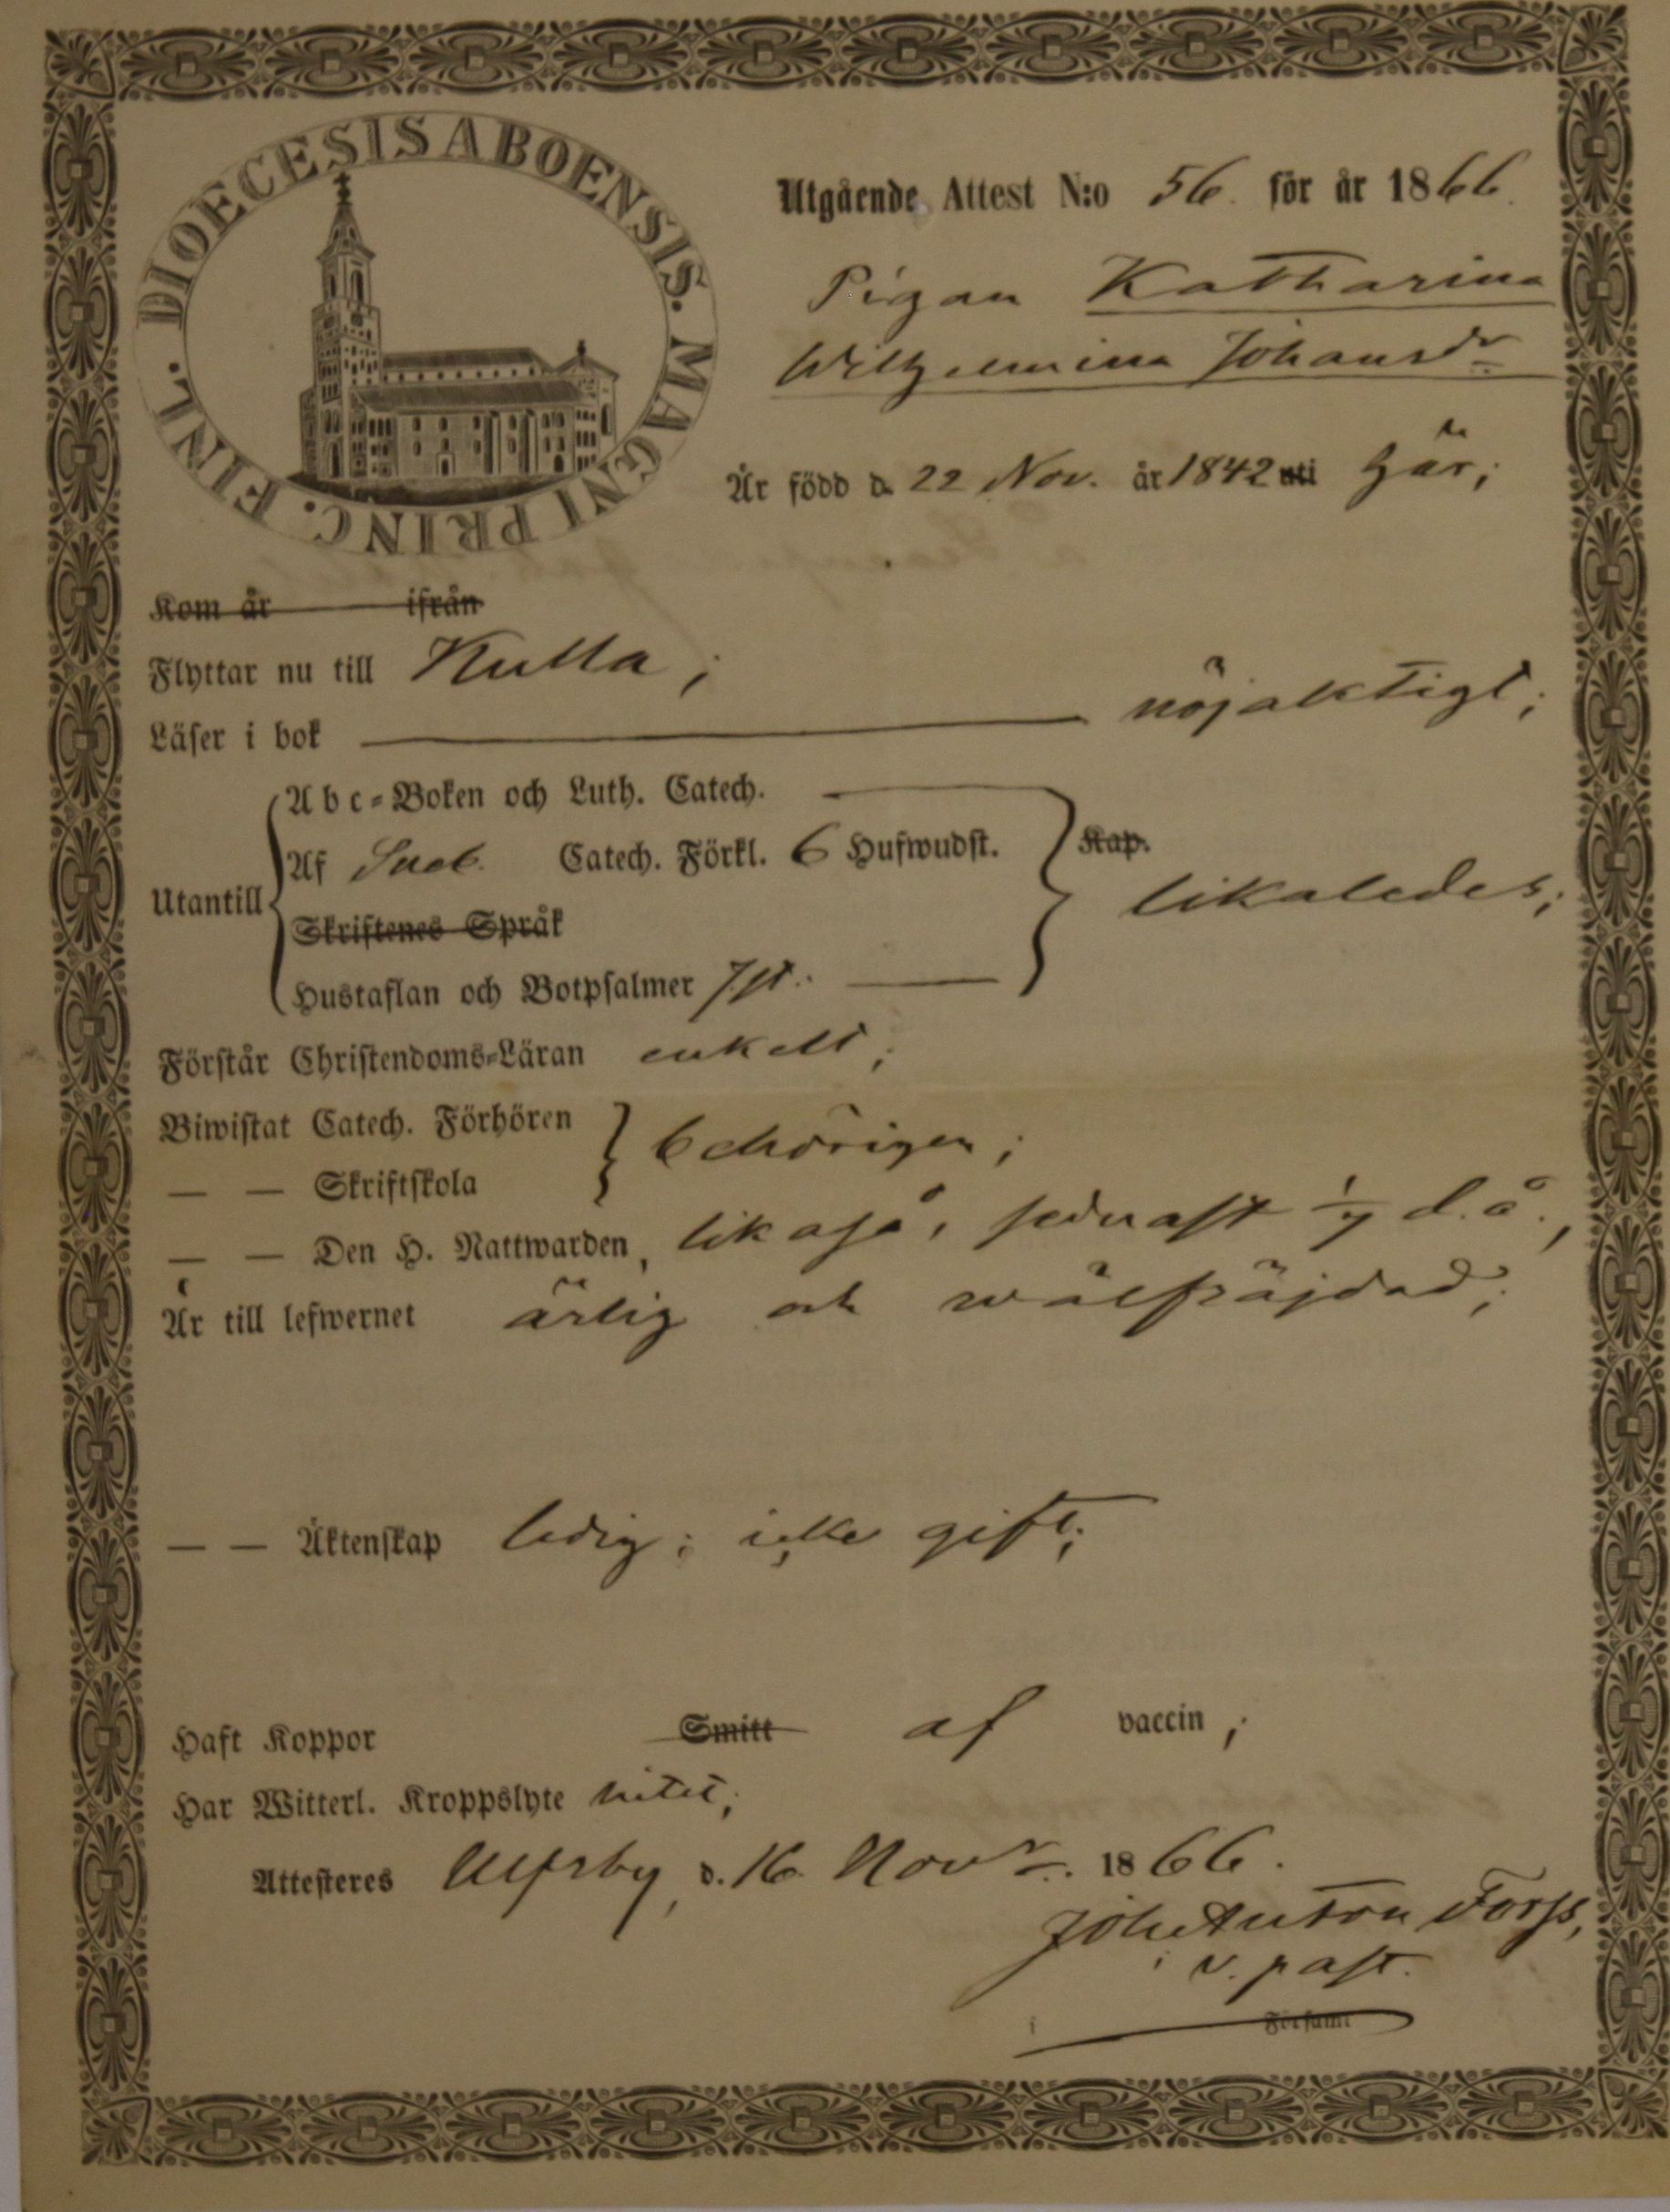 DIOECESIS ABOENSIS. MAGNI PRINC. FINL.
Utgående Attest N:o 56. för år 1866.
Pigan Katharina
Wilhelmina Johansdr
Är född d. 22 Nov. år 1842 uti här;
Kom år ifrån
Flyttar nu till Kulla;
Läser i bok nöjaktigt;
Utantill
Abc-Boken och Luth. Catech.
Af Sveb. Catech. Förkl. 6 Hufwudst. Kap.
Skriftenes Språk
likaledes;
Hustaflan och Botpsalmer 7 st.
Förstår Christendoms-Läran enkelt;
Biwistat Catech. Förhören
— — Skriftskola
behörigen;
— — Den H. Nattwarden, likaså, sednast 1/7 d. å.,
Är till lefwernet ärlig och wälfräjdad;
— — Äktenskap ledig; icke gift;
Haft Koppor Smitt af vaccin;
Har Witterl. Kroppslyte intet;
Attesteres Ulfsby, d. 16 Novr. 1866.
Joh. Anton Forss,
v. past.
i Församl